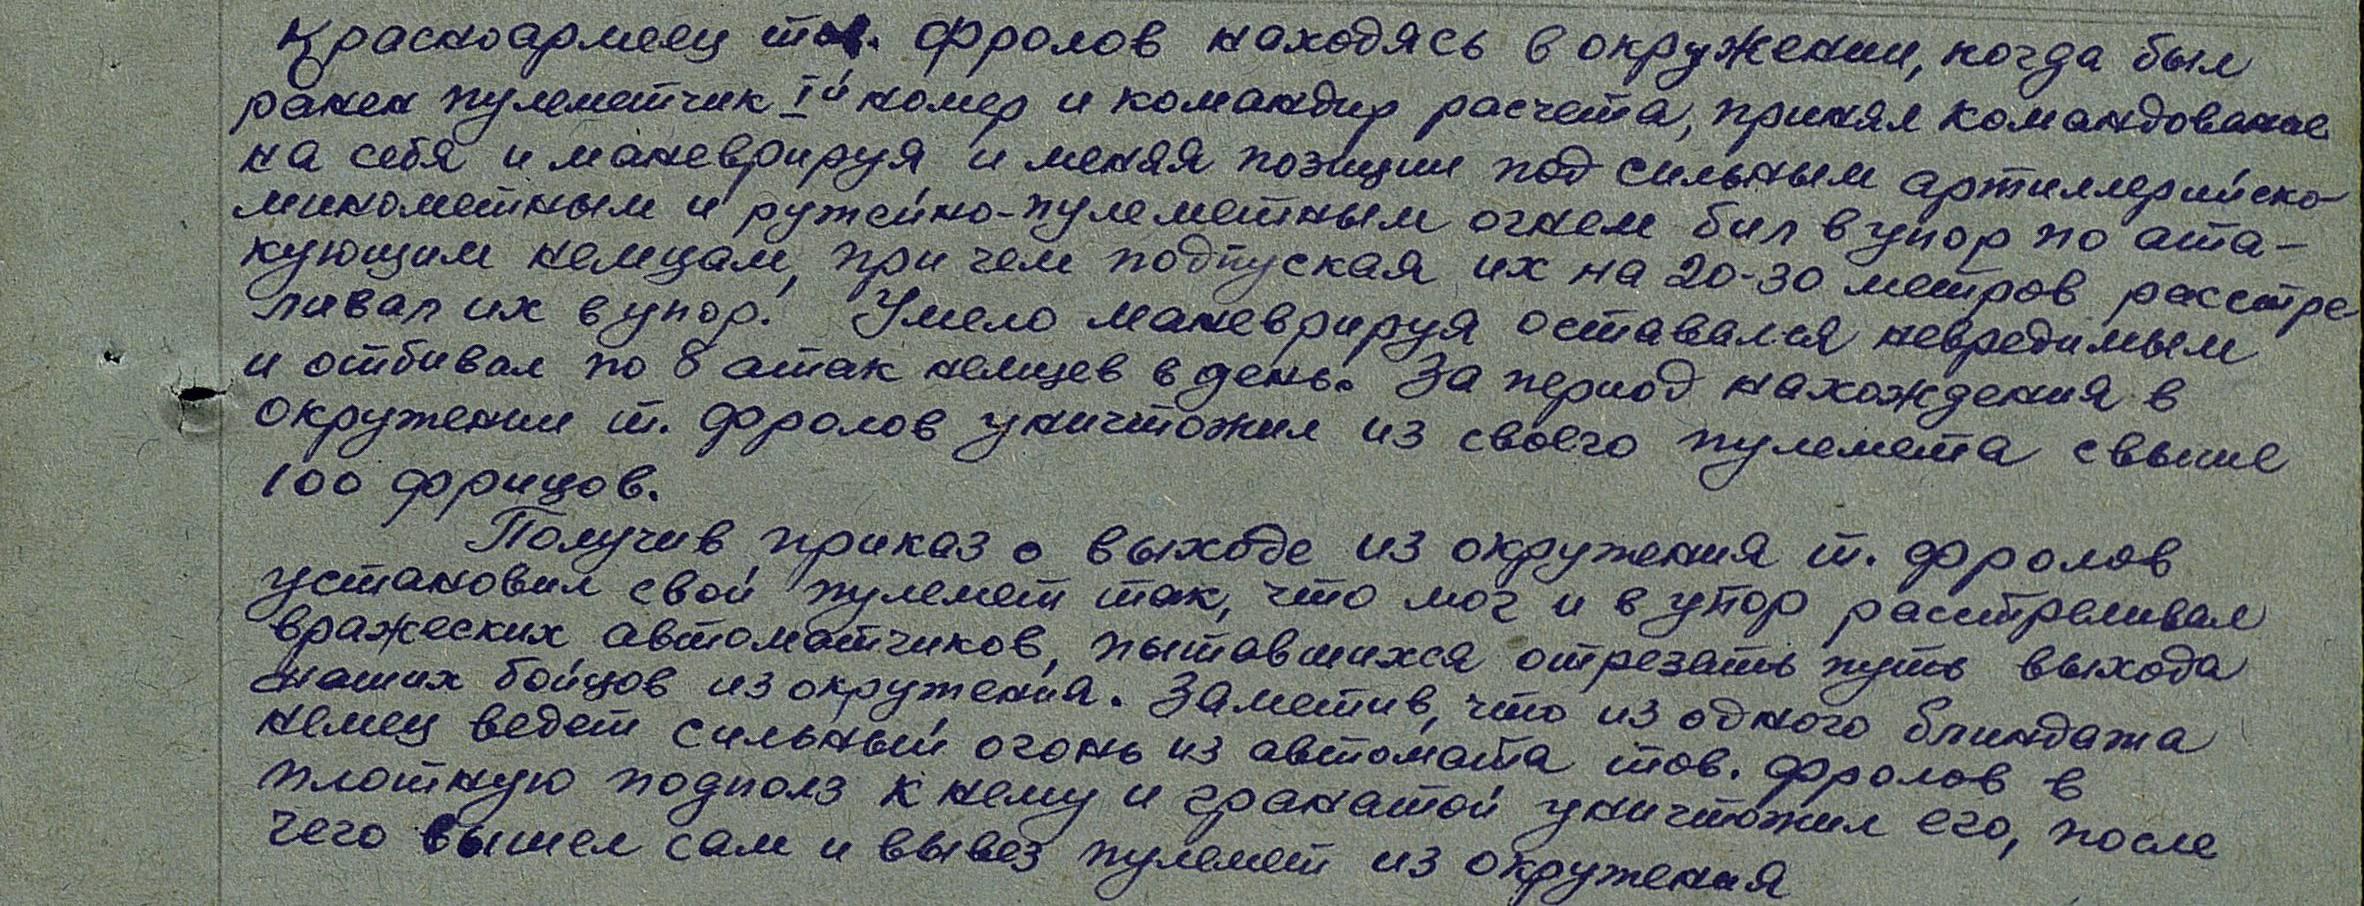 Красноармеец тов. Фролов находясь в окружении, когда был
ранен пулеметчик Iй номер и командир расчета, принял командование
на себя и маневрируя и меняя позиции под сильным артиллерийско-
минометным и ружейно-пулеметным огнем бил в упор по ата-
кующим немцам, при чем подпуская их на 20-30 метров расстре-
ливал их в упор. Умело маневрируя оставался невредимым
и отбивал по 8 атак немцев в день. За период нахождения в
окружении т. Фролов уничтожил из своего пулемета свыше
100 фрицов.
Получив приказ о выходе из окружения т. Фролов
установил свой пулемет так, что мог и в упор расстреливал
вражеских автоматчиков, пытавшихся отрезать путь выхода
наших бойцов из окружения. Заметив, что из одного блиндажа
немец ведет сильный огонь из автомата тов. Фролов в
плотную подполз к нему и гранатой уничтожил его, после
чего вышел сам и вывез пулемет из окружения